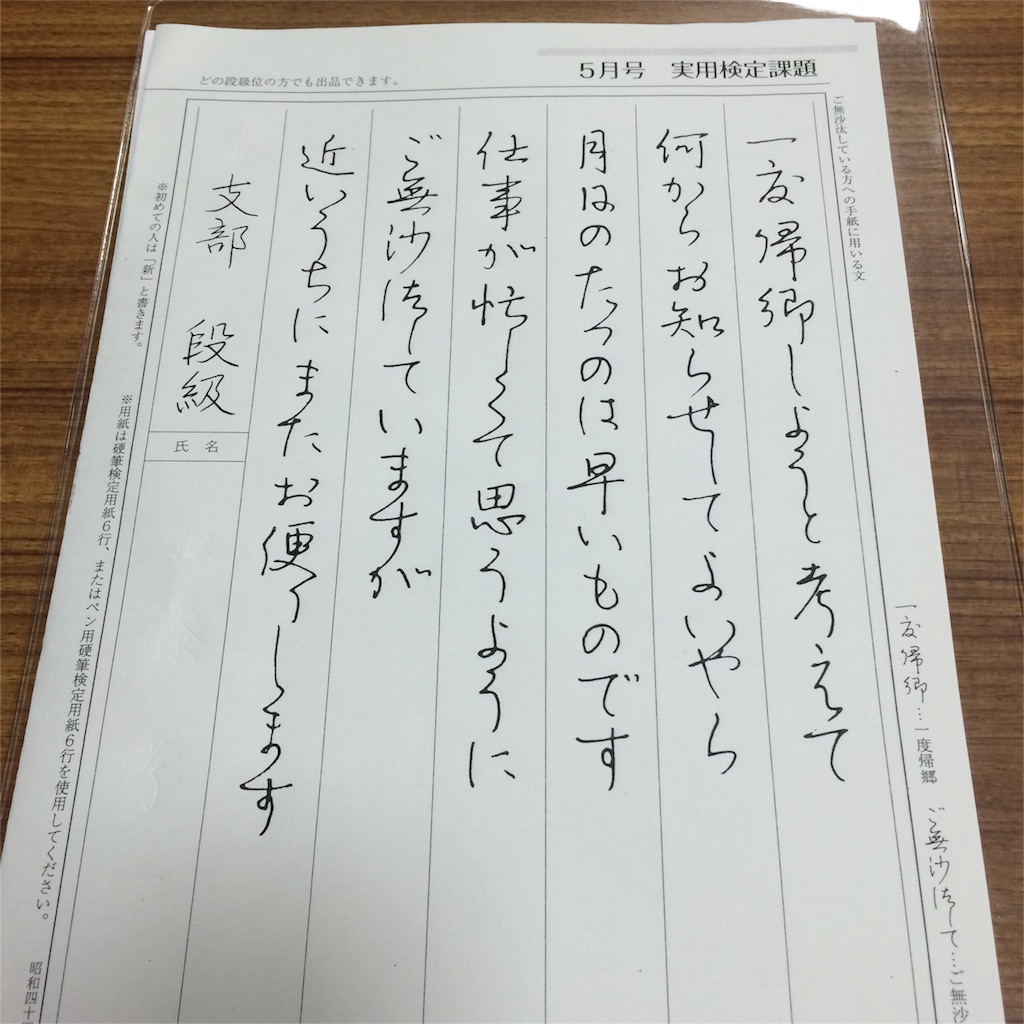 5月号 実用検定課題
どの段級位の方でも出品できます。
ご無沙汰している方への手紙に用いる文
一度帰郷しようと考えて
何からお知らせしてよいやら
月日のたつのは早いものです
仕事が忙しくて思うように
ご無沙汰していますが
近いうちにまたお便りします
支部 段級
氏名
一度帰郷…一度帰郷 ご無沙汰して…ご無沙
※初めての人は「新」と書きます。
※用紙は硬筆検定用紙6行、またはペン用硬筆検定用紙6行を使用してください。
昭和四十